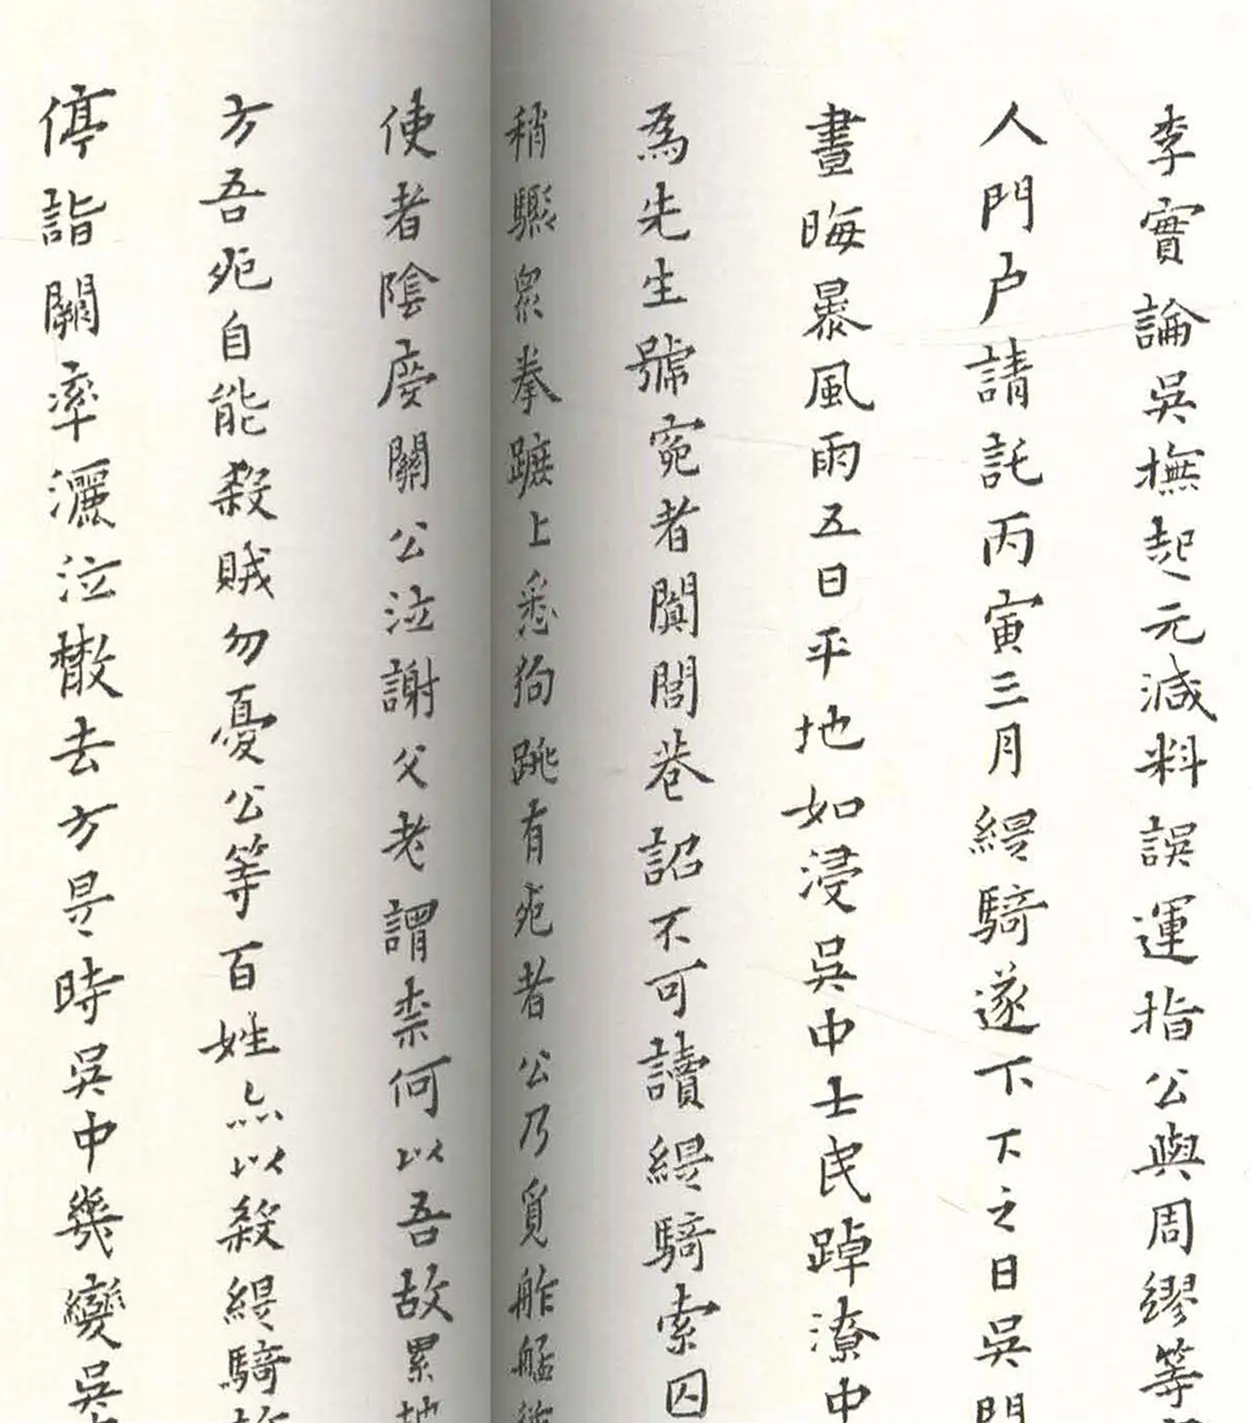 李實論吳撫起元減料誤運指公與周繆等
人門戶請託丙寅三月緹騎遂下下之日吳門
晝晦暴風雨五日平地如浸吳中士民踔潦中
為先生號寃者闐閭巷詔不可讀緹騎索囚
稍驟眾拳蹠上悉狗跳有死者公乃覓舴艋
使者陰度關公泣謝父老謂柰何以吾故累地
方吾死自能殺賊勿憂公等百姓亦以殺緹騎故
停詣闕率灑泣散去方是時吳中幾變吳